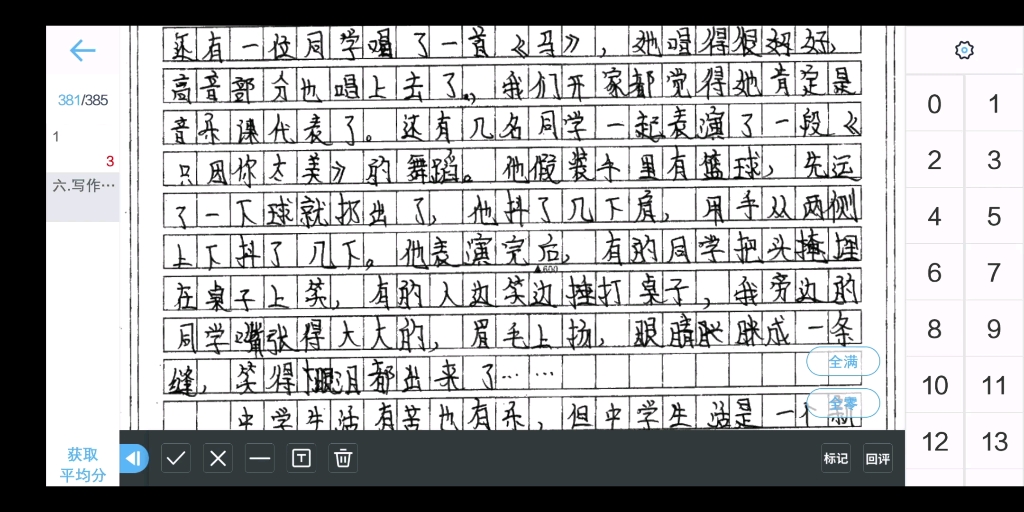 381/385
1
3
六.写作…
获取
平均分
还有一位同学唱了一首《马》，她唱得很好好，
高音部分也唱上去了，我们开家都觉得她肯定是
音乐课代表了。还有几名同学一起表演了一段《
只因你太美》的舞蹈。他假装手里有篮球，先运
了一下球就扔出了，他抖了几下肩，用手从两侧
上下抖了几下。他表演完后，有的同学把头掩埋
▲600
在桌子上笑，有的人边笑边捶打桌子，我旁边的
同学嘴张得大大的，眉毛上扬，眼睛眯成一条
缝，笑得眼泪都出来了……
中学生活有苦也有乐，但中学生活是一个新
全满
全零
标记
回评
0 1
2 3
4 5
6 7
8 9
10 11
12 13